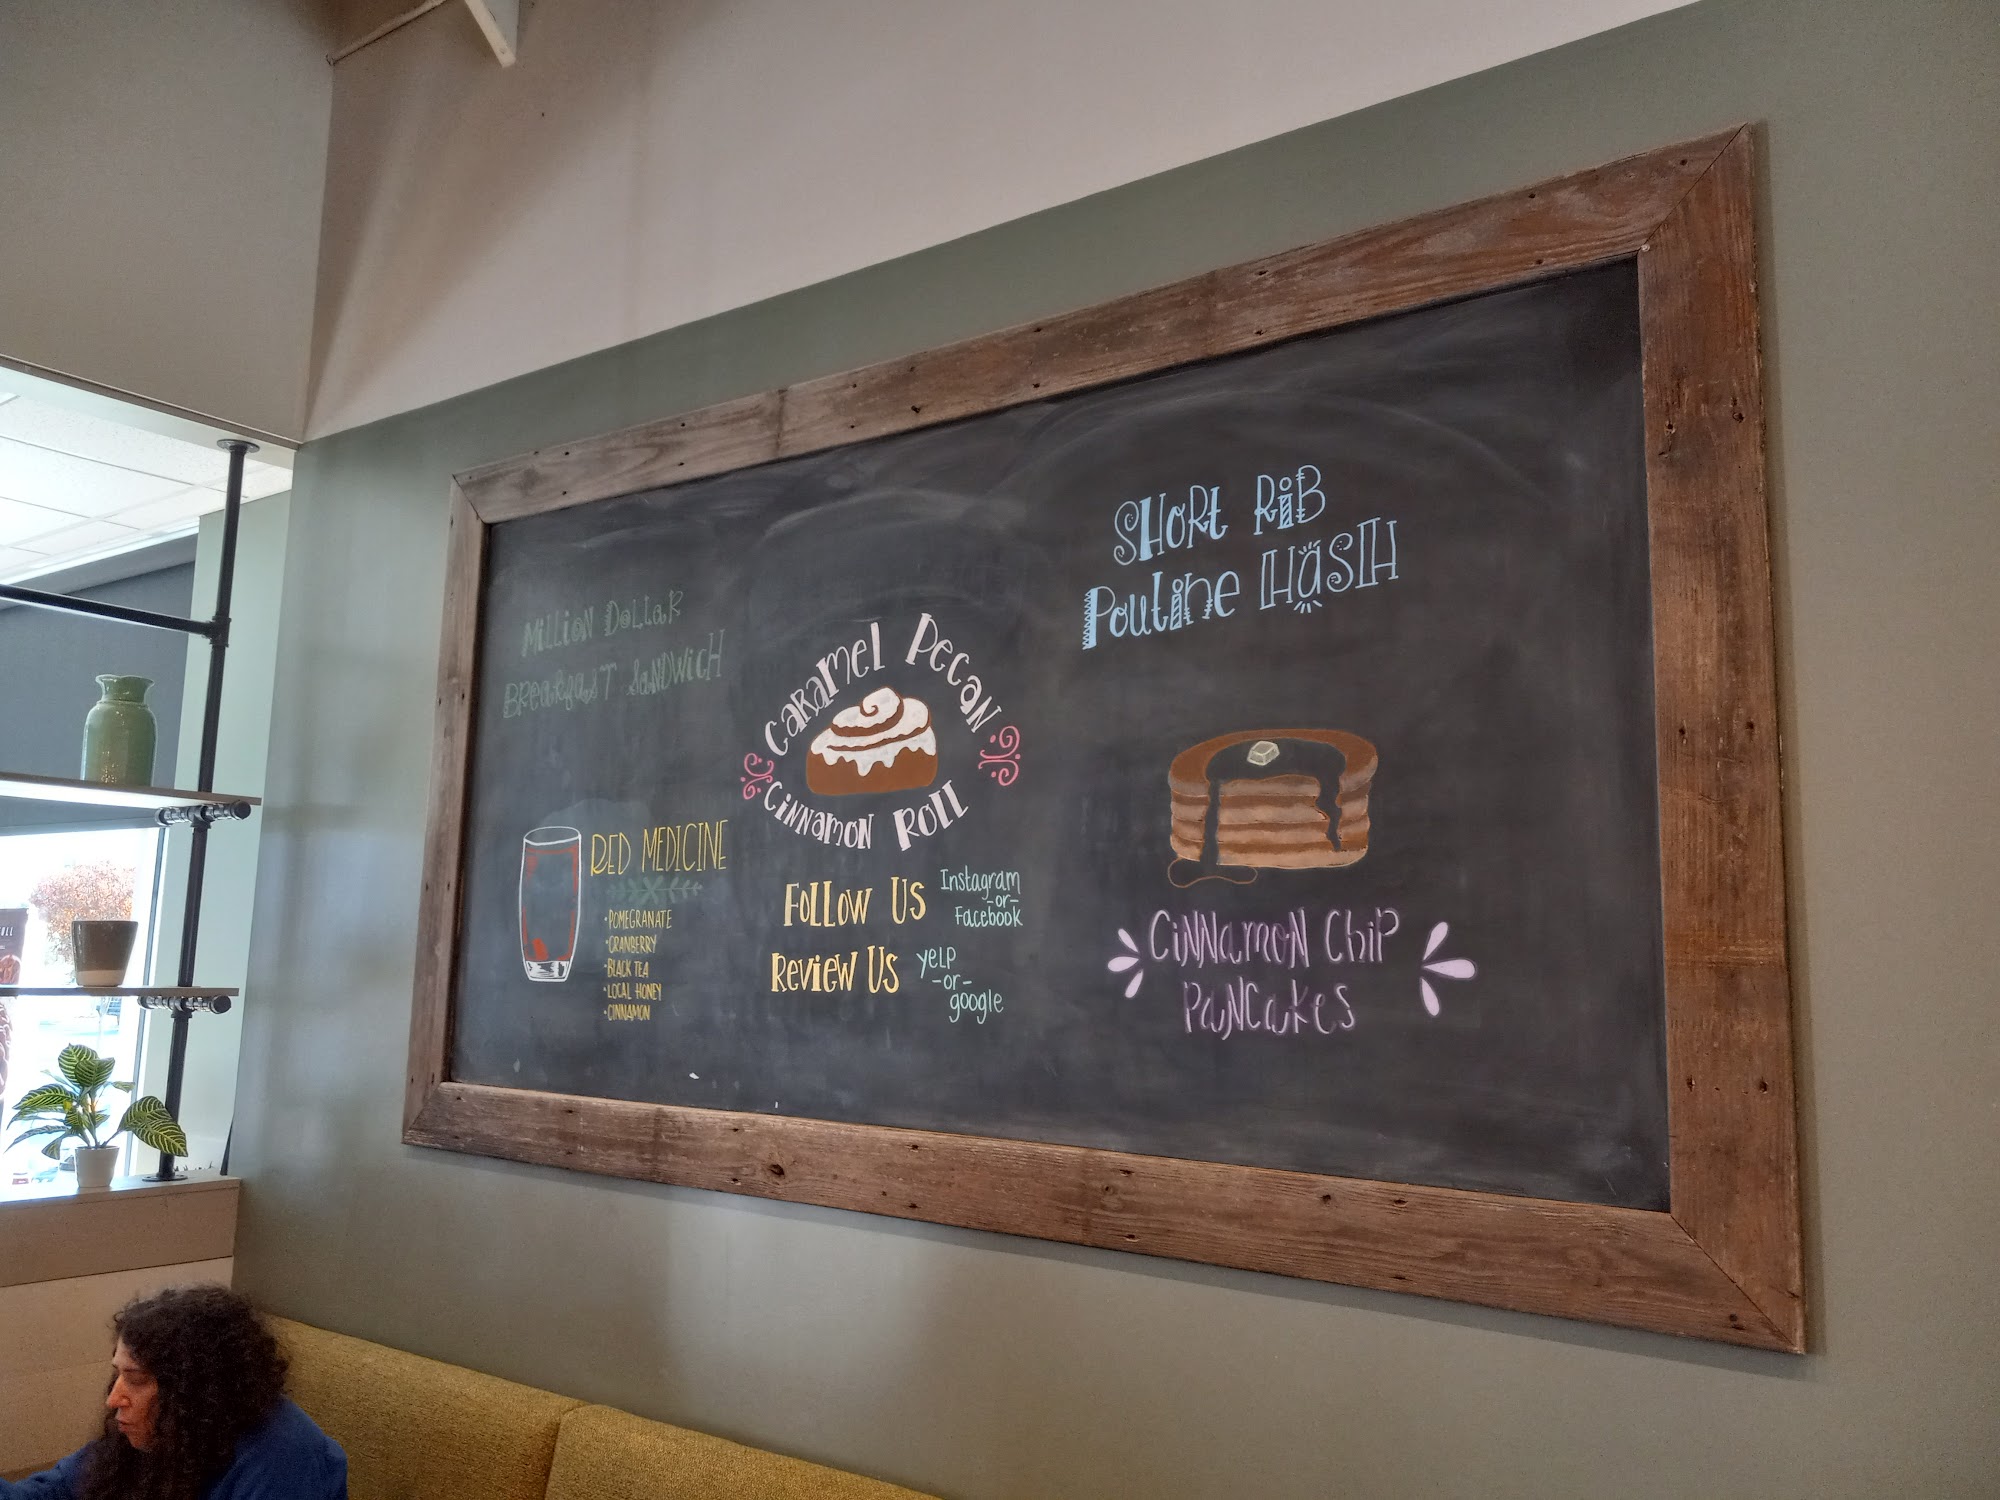 Million Dollar
Breakfast Sandwich
Red Medicine
• Pomegranate
• Cranberry
• Black Tea
• Local Honey
• Cinnamon
Caramel Pecan
Cinnamon Roll
Follow Us
Instagram
-or-
Facebook
Review Us
yelp
-or-
google
Short Rib
Poutine Hash
Cinnamon Chip
Pancakes